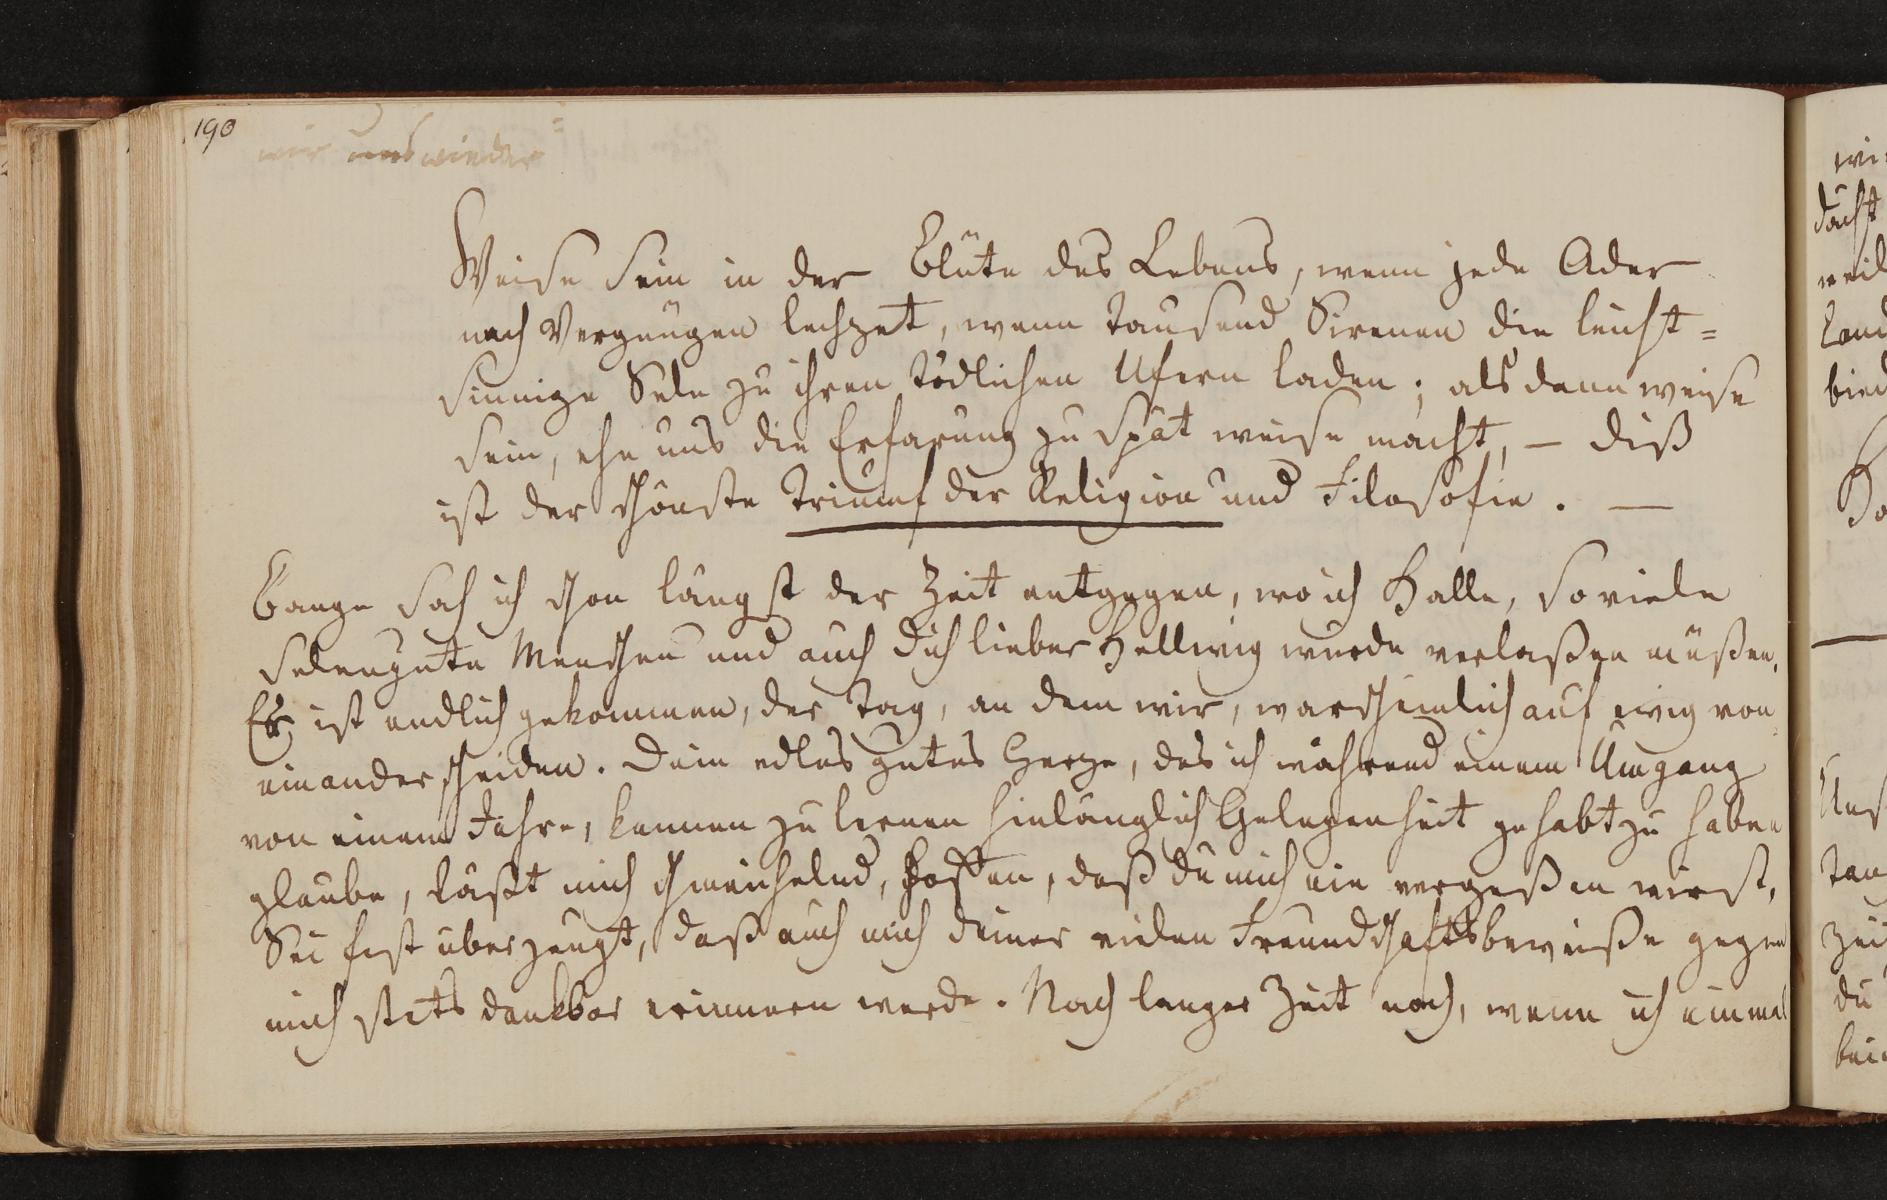 190
wir uns wieder
Weise sein in der Blüte des Lebens, wenn jede Ader
nach Vergnügen lechzet, wenn tausend Sirenen die leicht=
sinnige Sele zu ihren tödlichen Ufern laden; als dann weise
sein, ehe uns die Erfarung zu spät weise macht, – diß
ist der schönste Triumf der Religion und Filosofie. —
Bange sah ich schon längst der Zeit entgegen, wo ich Halle, so viele
selengute Menschen und auch dich lieber Hellwig wurde verlaßen müßen.
Er ist endlich gekommen, der Tag, an dem wir, warscheinlich auf ewig von
einander scheiden. Dein edles gutes Herze, das ich während einem Umgang
von einem Jahre, kennen zu lernen hinlänglich Gelegenheit gehabt zu haben
glaube, läßt mich schmeichelnd, hoffen, daß du mich nie vergeßen wirst,
Sei fest überzeugt, daß auch mich deiner vielen Freundschaftsbeweiße gegen
mich stets dankbar erinnern werde. Nach langer Zeit noch, wenn ich einmal
wi
dacht
weil
Land
bied
Ho
Uns
Tan
Zeit
du
bei